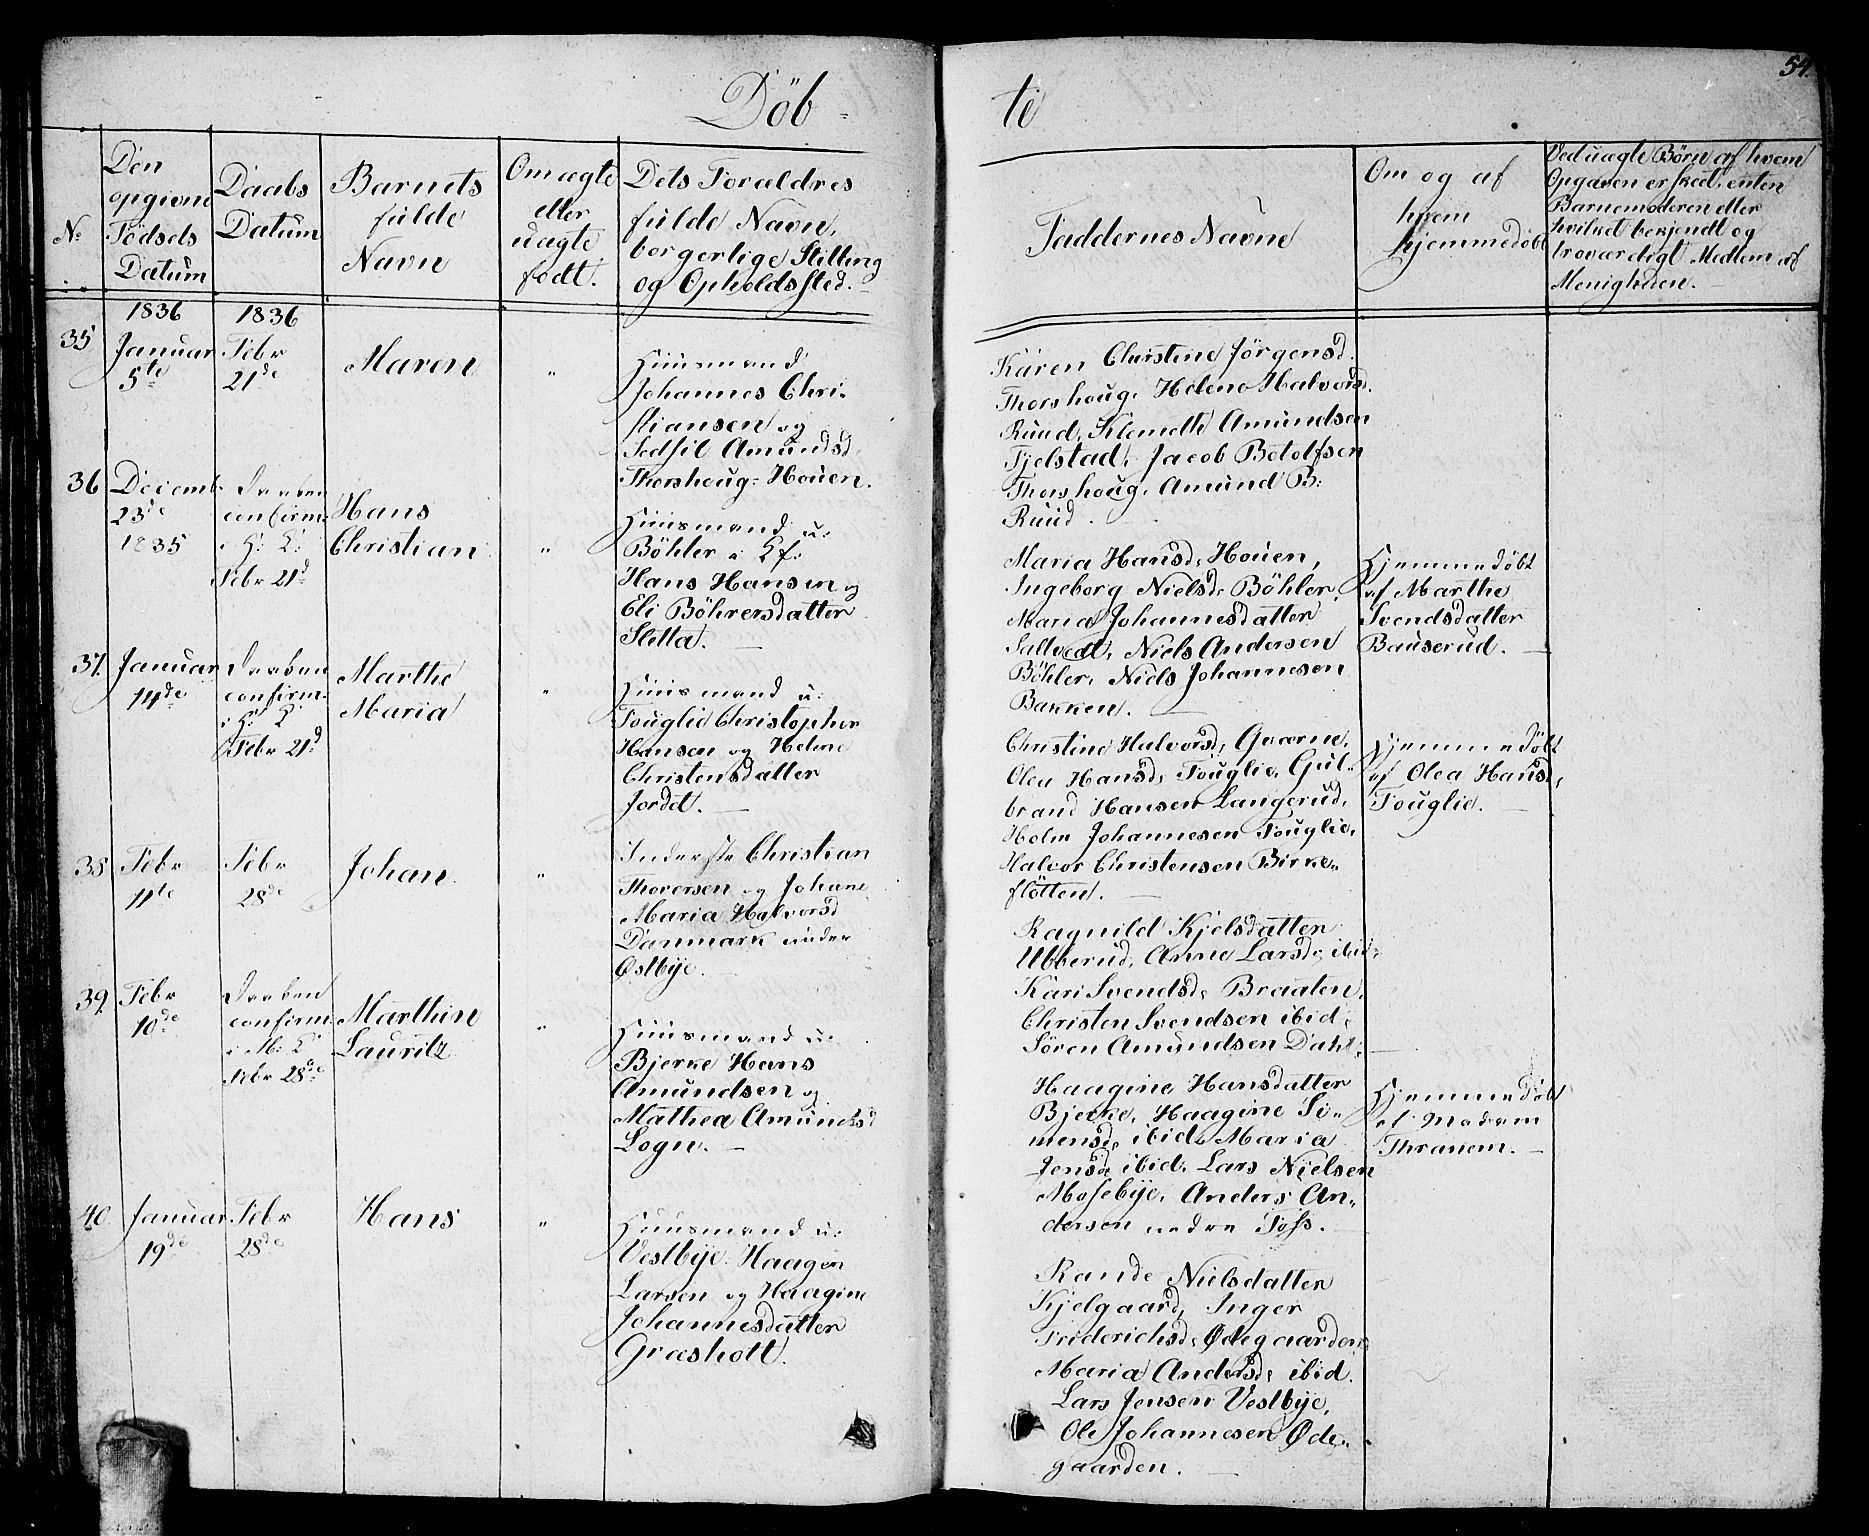 Döb-
te
54.
No
Den
opgivne
Födsels
Datum
Daabs
Datum
Barnets
fulde
Navn
Om ægte
eller
uægte
født.
Dets Forældres
fulde Navn,
borgerlige Stilling
og Opholdssted.
Faddernes Navne
Om og af
hvem
hjemmedöbt
Ved uægte Börn af hvem
Opgaven er skeet, enten
Barnemoderen eller
hvilket bekjendt og
troværdigt Medlem af
Menigheden.
1836
1836
35
Januar
5te
Febr
21de
Maren
"
Huusmand
Johannes Chri-
stiansen og
Sedsil Amundsd.
Thorshoug-Houen.
Karen Christine Jörgensd.
Thorshoug, Helene Halvorsd.
Ruud, Klemette Amundsen
Fjelstad, Jacob Botolfsen
Thorshoug, Amund B:
Ruud.
36
Decemb.
23de
1835
Daaben
confirm.
i H: K:
Febr 21d
Hans
Christian
"
Huusmand u:
Böhler i Kf:
Hans Hansen og
Eli Böhrersdatter
Sletta.
Maria Hansd, Houen,
Ingeborg Nielsd, Böhler,
Maria Johannesdatter
Saltvedt, Niels Andersen
Böhler, Niels Johannesen
Bakken.
Hjemmedöbt
af Marthe
Svendsdatter
Bauserud.
37.
Januar
14de
Daaben
confirm.
i H: K
Febr 21d
Marthe
Maria
"
Huusmand u:
Fouglie Christopher
Hansen og Helene
Christensdatter
Jordet.
Christine Halvorsd, Qværne,
Olea Hansd, Fouglie, Gul-
brand Hansen Langerud,
Holm Johannesen Fouglie,
Halvor Christensen Birke-
flötten.
Hjemmedöbt
af Olea Hansd,
Fouglie.
38
Febr
11te
Febr
28de
Johan
"
Inderste Christian
Thoversen og Johane
Maria Halvorsd
Danmark under
Østbye.
Ragnild Kjelsdatter
Ubberud, Anne Larsd, ibid,
Kari Svendsd, Braaten,
Christen Svendsen ibid,
Sören Amundsen Dahl.
39.
Febr
10de
Daaben
confirm.
i M: K
Febr 28de
Marthin
Lauritz
"
Huusmand u:
Bjerke Hans
Amundsen og
Mathea Amundsd
Logn.
Haagine Hansdatter
Bjerke, Haagine Si-
mensd, ibid, Maria
Jensd, ibid, Lars Nielsen
Mosebye, Anders An-
dersen nedre Foss.
Hjemmedöbt
af Madam
Thranem.
40
Januar
19de
Febr
28de
Hans
"
Huusmand u:
Vestbye Haagen
Larsen og Haagine
Johannesdatter
Græsholt.
Rande Nielsdatter
Kjelgaard, Inger
Friderichsd, Ødegaarden,
Maria Andersd, ibid.
Lars Jensen Vestbye,
Ole Johannesen Øde-
gaarden.